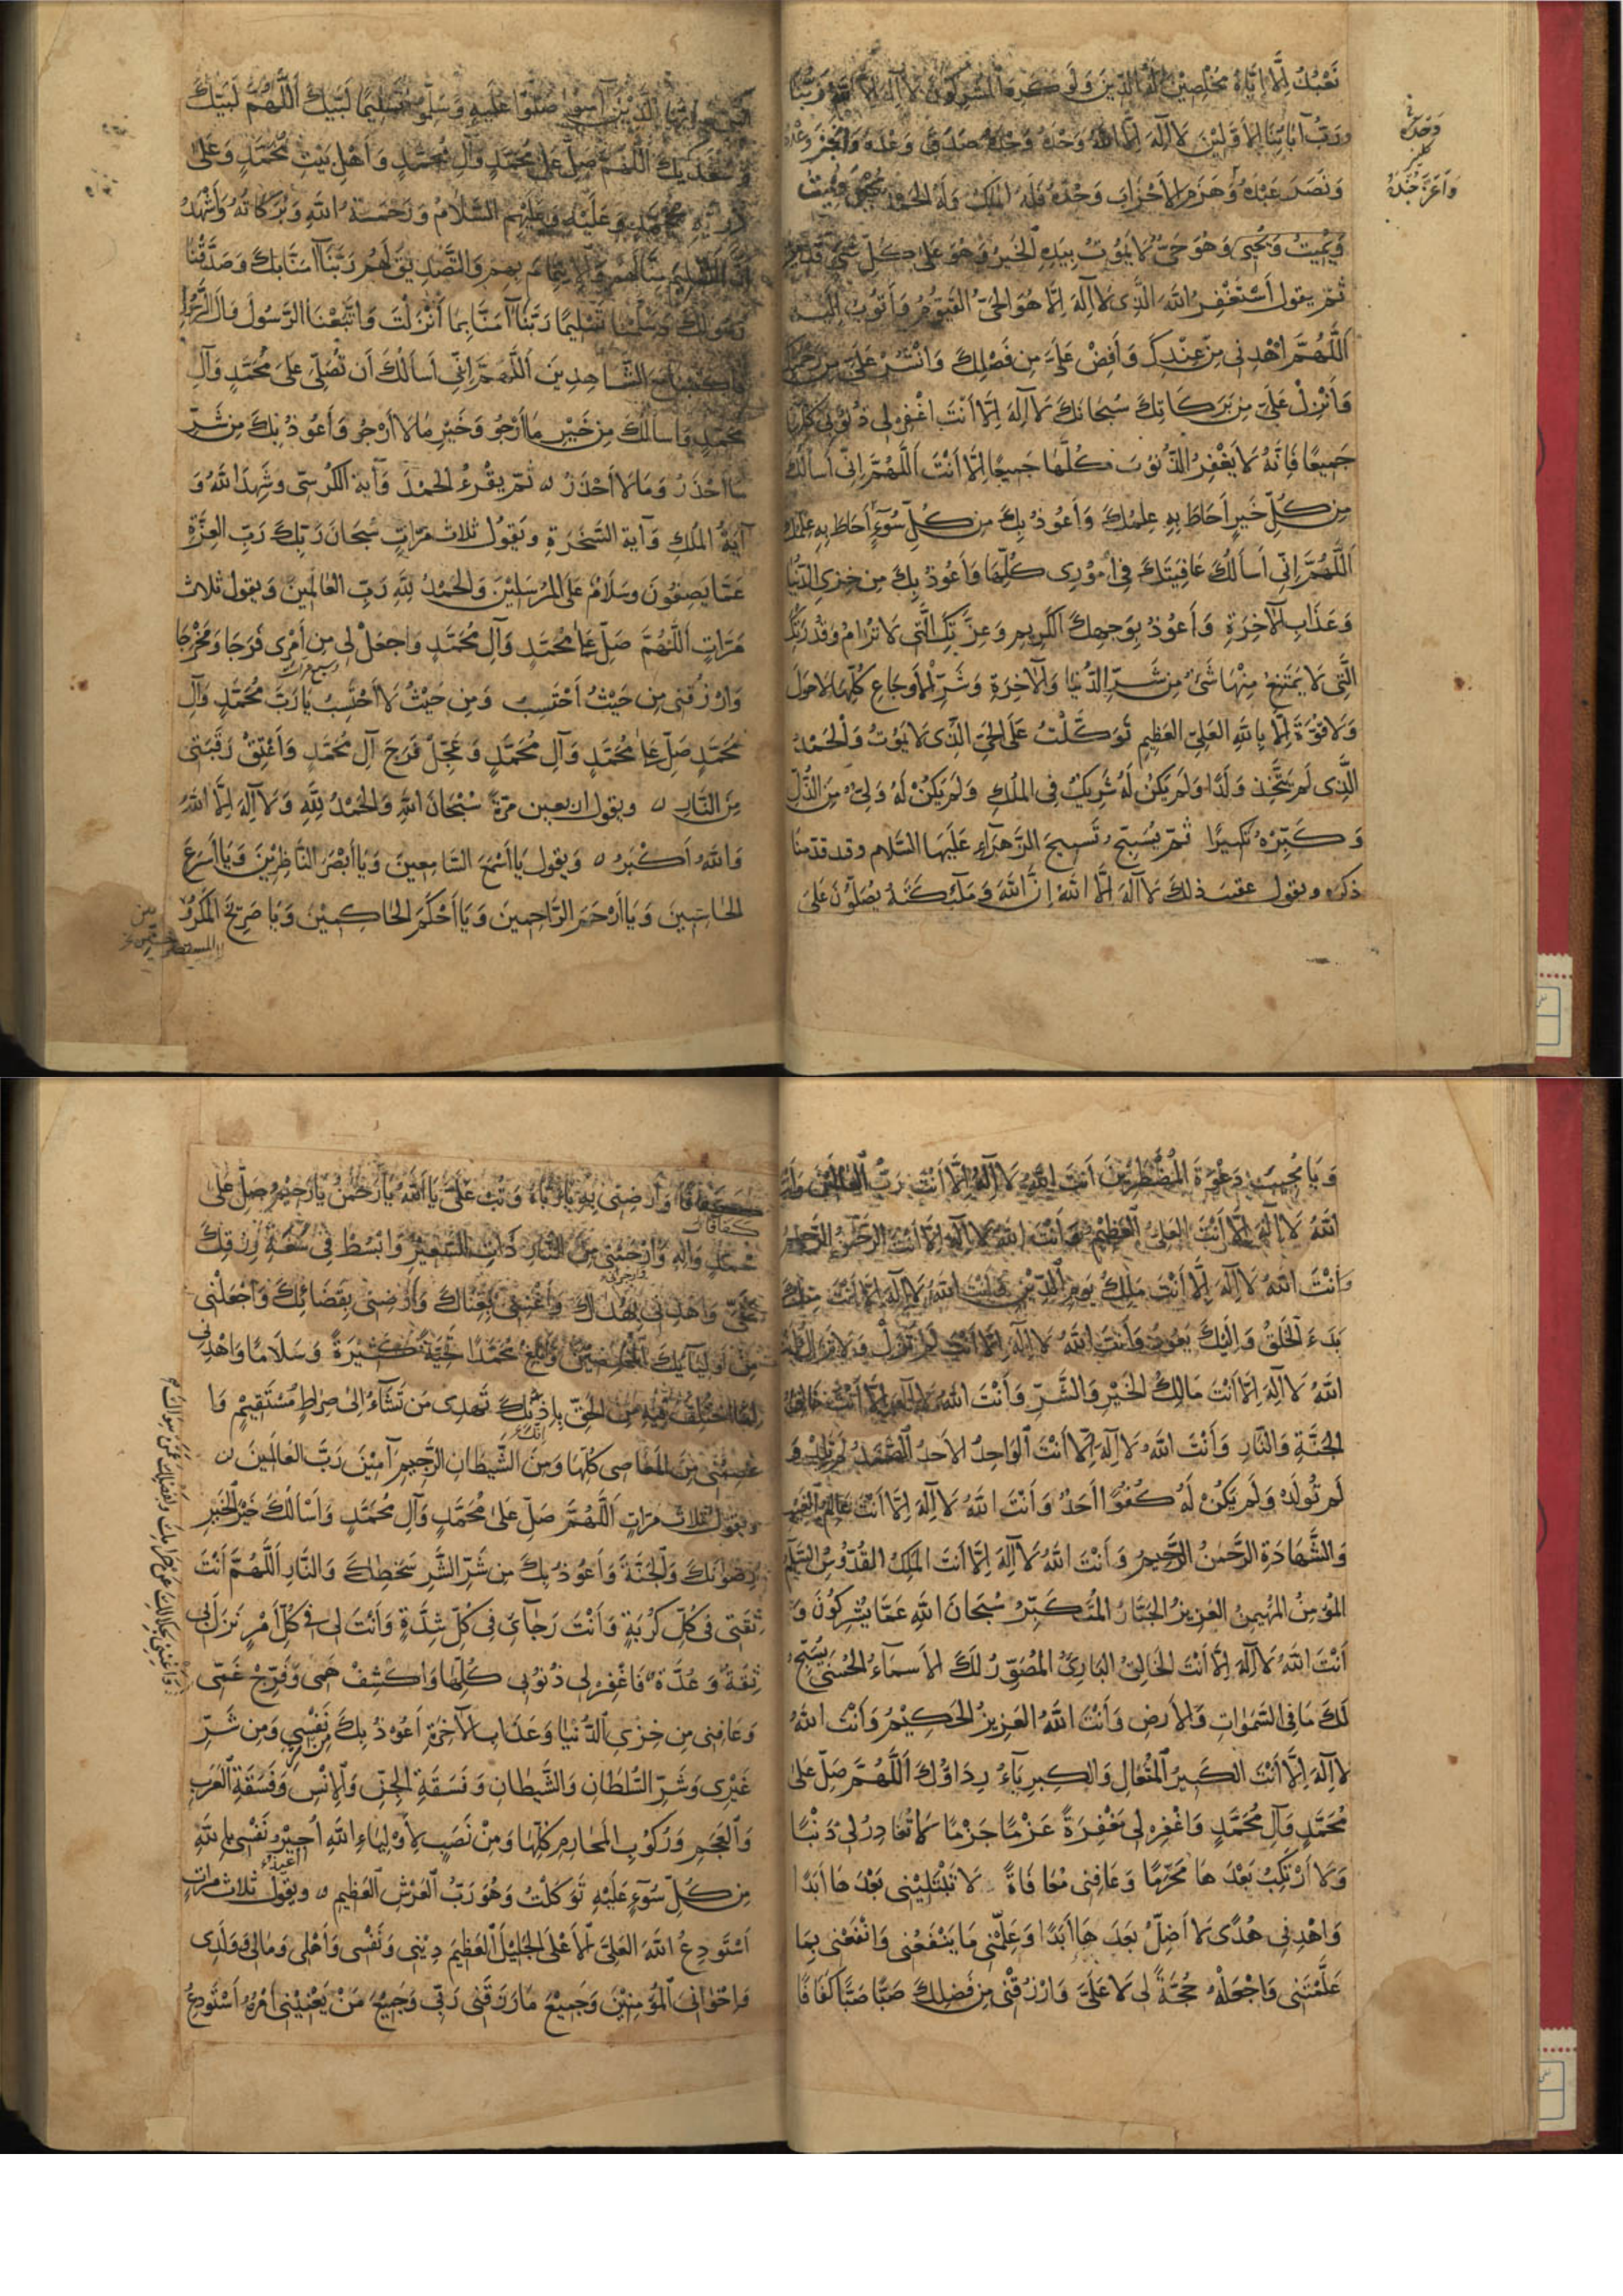 نَعْبُدُ إِلَّا إِيَّاهُ مُخْلِصِيْنَ لَهُ الدِّيْنَ وَلَوْ كَرِهَ الْمُشْرِكُونَ لَا إِلَهَ إِلَّا اللَّهُ رَبُّنَا
وَرَبُّ آبَائِنَا الأَوَّلِيْنَ لَا إِلَهَ إِلَّا اللَّهُ وَحْدَهُ وَحْدَهُ وَحْدَهُ صَدَقَ وَعْدَهُ وَأَنْجَزَ وَعْدَهُ
وَنَصَرَ عَبْدَهُ وَهَزَمَ الأَحْزَابَ وَحْدَهُ فَلَهُ المُلْكُ وَلَهُ الحَمْدُ يُحْيِي وَيُمِيتُ
وَيُمِيْتُ وَيُحْيِى وَهُوَ حَيٌّ لَا يَمُوْتُ بِيَدِهِ الْخَيْرُ وَهُوَ عَلَى كُلِّ شَيْءٍ قَدِيْرٌ
ثُمَّ يقول أَسْتَغْفِرُ اللَّهَ الَّذِى لَا إِلَهَ إِلَّا هُوَ الحَيُّ القَيُّوْمُ وَأَتُوْبُ إِلَيْهِ
اَللَّهُمَّ اهْدِنِى مِنْ عِنْدِكَ وَأَفِضْ عَلَيَّ مِن فَضْلِكَ وَانْشُرْ عَلَيَّ مِن رَحْمَتِكَ
وَأَنْزِلْ عَلَيَّ مِن بَرَكَاتِكَ سُبْحَانَكَ لَا إِلَهَ إِلَّا أَنْتَ اغْفِرْ لِى ذُنُوْبِى كُلَّهَا
جَمِيعًا فَإِنَّهُ لَا يَغْفِرُ الذُّنُوْبَ كُلَّهَا جَمِيعًا إِلَّا أَنْتَ اَللَّهُمَّ إِنِّى أَسْأَلُكَ
مِن كُلِّ خَيْرٍ أَحَاطَ بِهِ عِلْمُكَ وَأَعُوذُ بِكَ مِن كُلِّ سُوْءٍ أَحَاطَ بِهِ عِلْمُكَ
اَللَّهُمَّ إِنِّى أَسْأَلُكَ عَافِيَتَكَ فِى أُمُوْرِى كُلِّهَا وَأَعُوذُ بِكَ مِن خِزْىِ الدُّنْيَا
وَعَذَابِ الْآخِرَةِ وَأَعُوذُ بِوَجْهِكَ الكَرِيمِ وَعِزَّتِكَ الَّتِى لَا تُرَامُ وَقُدْرَتِكَ
الَّتِى لَا يَمْتَنِعُ مِنْهَا شَىْءٌ مِن شَرِّ الدُّنْيَا وَالْآخِرَةِ وَشَرِّ الْأَوْجَاعِ كُلِّهَا لَا حَوْلَ
وَلَا قُوَّةَ إِلَّا بِاللَّهِ العَلِىِّ العَظِيمِ تَوَكَّلْتُ عَلَى الحَيِّ الَّذِى لَا يَمُوتُ وَالْحَمْدُ
الَّذِى لَمْ يَتَّخِذ وَلَدًا وَلَمْ يَكُنْ لَهُ شَرِيكٌ فِى المُلْكِ وَلَمْ يَكُنْ لَهُ وَلِىٌّ مِنَ الذُّلِّ
وَكَبِّرْهُ تَكْبِيرًا ثُمَّ يُسَبِّحُ تَسْبِيحَ الزَّهْرَآءِ عَلَيْهَا السَّلام وقد قدّمنا
ذكره ويقول عقيب ذلك لَا إِلَهَ إِلَّا اللَّهُ إِنَّ اللَّهَ وَمَلَآئِكَتَهُ يُصَلُّوْنَ عَلَى
وَحْدَهُ
وَأَعَزَّ جُنْدَهُ
يَا أَيُّهَا الَّذِيْنَ آمَنُوا صَلُّوْا عَلَيْهِ وَسَلِّمُوا تَسْلِيمًا لَبَّيْكَ اَللَّهُمَّ لَبَّيْكَ
وَسَعْدَيْكَ اللَّهُمَّ صَلِّ عَلَى مُحَمَّدٍ وَآلِ مُحَمَّدٍ وَأَهْلِ بَيْتِ مُحَمَّدٍ وَعَلَى
ذُرِّيَّةِ مُحَمَّدٍ وَعَلَيْهِ وَعَلَيْهِم السَّلَامُ وَرَحْمَةُ اللَّهِ وَبَرَكَاتُهُ وَأَشْهَدُ
أَنَّ التَّسْلِيمَ مِنَّا لَهُمْ وَالْإِيتِمَامَ بِهِمْ وَالتَّصْدِيقَ لَهُمْ رَبَّنَا آمَنَّا بِكَ وَصَدَّقْنَا
رَسُولَكَ وَسَلَّمْنَا تَسْلِيمًا رَبَّنَا آمَنَّا بِمَا أَنْزَلْتَ وَاتَّبَعْنَا الرَّسُولَ وَآلَ الرَّسُولِ
فَاكْتُبْنَا مَعَ الشَّاهِدِينَ اَللَّهُمَّ إِنِّى أَسْأَلُكَ أَن تُصَلِّىَ عَلَى مُحَمَّدٍ وَآلِ
مُحَمَّدٍ وَأَسْأَلُكَ مِن خَيْرِ مَا أَرْجُو وَخَيْرِ مَا لَا أَرْجُو وَأَعُوذُ بِكَ مِن شَرِّ
مَا أَحْذَرُ وَمَا لَا أَحْذَرُ ثُمّ يقْرءُ الحَمْدَ وَآيَةَ الكُرْسِّى وَشَهِدَ اللَّهُ وَ
آيَةَ المُلْكِ وَآيَة السَّخَرَةِ ويَقُولُ ثلاث مَرّاتٍ سُبْحَانَ رَبِّكَ رَبِّ العِزَّةِ
عَمَّا يَصِفُونَ وَسَلَامٌ عَلَى المُرْسَلِيْنَ وَالْحَمْدُ لِلَّهِ رَبِّ العَالَمِيْنَ وَيقول ثلاث
مَرّاتٍ اَللَّهُمَّ صَلِّ عَلَى مُحَمَّدٍ وَآلِ مُحَمَّدٍ وَاجعَلْ لِى مِن أَمْرِى فَرَجًا وَمَخْرَجًا
وَارْزُقْنِى مِن حَيْثُ أَحْتَسِبُ وَمِن حَيْثُ لَا أَحْتَسِبُ يَا رَبَّ مُحَمَّدٍ وَآلِ
مُحَمَّدٍ صَلِّ عَلَى مُحَمَّدٍ وَآلِ مُحَمَّدٍ وَعَجِّلْ فَرَجَ آلِ مُحَمَّدٍ وَأَعْتِقْ رَقَبَتِى
مِنَ النَّارِ ويقول اربعين مَرّةً سُبْحَانَ اللَّهِ وَالحَمْدُ لِلَّهِ وَلَا إِلَهَ إِلَّا اللَّهُ
وَاللَّهُ أَكْبَرُ وَيقول يَا أَسْمَعَ السَّامِعِينَ وَيَا أَبْصَرَ النَّاظِرِيْنَ وَيَا أَسْرَعَ
الحَاسِبِينَ وَيَا أَرْحَمَ الرَّاحِمِينَ وَيَا أَحْكَمَ الحَاكِمِيْنَ وَيَا صَرِيْخَ المَكْرُو
وَيَا مُجِيبَ دَعْوَةِ المُضْطَرِّيْنَ أَنتَ اللَّهُ لَا إِلَهَ إِلَّا أَنْتَ رَبُّ العَالَمِيْنَ وَأَنْتَ
اللَّهُ لَا إِلَهَ إِلَّا أَنْتَ العَلِىُّ العَظِيْمُ وَأَنْتَ اللَّهُ لَا إِلَهَ إِلَّا أَنْتَ الرَّحْمَنُ الرَّحِيْمُ
وَأَنْتَ اللَّهُ لَا إِلَهَ إِلَّا أَنْتَ مَلِكُ يَوْمِ الدِّيْنِ وَأَنْتَ اللَّهُ لَا إِلَهَ إِلَّا أَنْتَ مِنْكَ
بَدَءَ الْخَلْقُ وَإِلَيْكَ يَعُودُ وَأَنْتَ اللَّهُ لَا إِلَهَ إِلَّا أَنْتَ لَمْ تَزَلْ وَلَا تَزَالُ وَأَنْتَ
اللَّهُ لَا إِلَهَ إِلَّا أَنْتَ مَالِكُ الْخَيْرِ وَالشَّرِّ وَأَنْتَ اللَّهُ لَا إِلَهَ إِلَّا أَنْتَ خَالِقُ
الجَنَّةِ وَالنَّارِ وَأَنْتَ اللَّهُ لَا إِلَهَ إِلَّا أَنْتَ الْوَاحِدُ الأَحَدُ الصَّمَدُ لَمْ تَلِدْ وَ
لَمْ تُولَدْ وَلَمْ يَكُنْ لَهُ كُفُوًا أَحَدٌ وَأَنْتَ اللَّهُ لَا إِلَهَ إِلَّا أَنْتَ عَالِمُ الغَيْبِ
وَالشَّهَادَةِ الرَّحْمَنُ الرَّحِيمُ وَأَنْتَ اللَّهُ لَا إِلَهَ إِلَّا أَنْتَ المَلِكُ القُدُّوسُ السَّلَمُ
المُؤْمِنُ المُهَيْمِنُ العَزِيزُ الجَبَّارُ المُتَكَبِّرُ سُبْحَانَ اللَّهِ عَمَّا يُشْرِكُونَ وَ
أَنْتَ اللَّهُ لَا إِلَهَ إِلَّا أَنْتَ الخَالِقُ البَارِئُ المُصَوِّرُ لَكَ الأَسْمَآءُ الْحُسْنَى يُسَبِّحُ
لَكَ مَا فِى السَّمَوَاتِ وَالأَرضِ وَأَنْتَ اللَّهُ العَزِيزُ الحَكِيْمُ وَأَنْتَ اللَّهُ
لَا إِلَهَ إِلَّا أَنْتَ الكَبِيرُ الْمُتَعَالِ وَالكِبرِيَآءُ رِدَاؤُكَ اَللَّهُمَّ صَلِّ عَلَى
مُحَمَّدٍ وَآلِ مُحَمَّدٍ وَاغْفِرْ لِى مَغْفِرَةً عَزْمًا جَزْمًا لَا تُغَادِرُ لِى ذَنْبًا
وَلَا أَرْتَكِبُ بَعْدَهَا مَحْرَمًا وَعَافِنِى مُعَافَاةً لَا تَبْتَلِيْنِى بَعْدَهَا أَبَدًا
وَاهْدِنِى هُدًى لَا أَضِلُّ بَعْدَهَا أَبَدًا وَعَلِّمْنِى مَا يَنْفَعُنِى وَانْفَعْنِى بِمَا
عَلَّمْتَنِى وَاجْعَلْهُ حُجَّةً لِى لَا عَلَيَّ وَارْزُقْنِى مِن فَضْلِكَ صَبًّا صَبًّا كَفَافًا
كَفَافًا وَأَرْضِنِى بِهِ يَا رَبَّاهُ وَتُبْ عَلَيَّ يَا اَللَّهُ يَا رَحْمَنُ يَا رَحِيمُ صَلِّ عَلَى
مُحَمَّدٍ وَآلِهِ وَارْحَمْنِى مِنَ النَّارِ ذَاتِ السَّعِيرِ وَابْسُطْ فِى سَعَةِ رِزْقِكَ
عَلَيَّ وَاهْدِنِى بِهُدَاكَ وَأَغْنِنِى بِغِنَاكَ وَأَرْضِنِى بِقَضَائِكَ وَاجْعَلْنِى
مِنْ أَوْلِيَآئِكَ الْمُخْلِصِيْنَ وَأَبْلِغْ مُحَمَّدًا تَحِيَّةً كَثِيْرَةً وَسَلَامًا وَاهْدِنِى
لِمَا اخْتُلِفَ فِيْهِ مِنَ الحَقِّ بِإِذْنِكَ تَهْدِى مَن تَشَآءُ إِلَى صِرَاطٍ مُسْتَقِيمٍ وَا
إِنَّكَ
عْصِمْنِى مِنَ المَعَاصِى كُلِّهَا وَمِنَ الشَّيْطَانِ الرَّجِيمِ آمِيْنَ رَبَّ العَالَمِينَ
ويقول ثلاث مَرّاتٍ اَللَّهُمَّ صَلِّ عَلَى مُحَمَّدٍ وَآلِ مُحَمَّدٍ وَأَسْأَلُكَ خَيْرَ الْخَيْرِ
رِضْوَانَكَ وَالْجَنَّةَ وَأَعُوذُ بِكَ مِن شَرِّ الشَّرِّ سَخَطِكَ وَالنَّارِ اَللَّهُمَّ أَنْتَ
ثِقَتِى فِى كُلِّ كُرْبَةٍ وَأَنْتَ رَجَآئِى فِى كُلِّ شِدَّةٍ وَأَنْتَ لِى فِى كُلِّ أَمْرٍ نَزَلَ بِى
ثِقَةٌ وَعُدَّةٌ فَاغْفِرْ لِى ذُنُوبِى كُلَّهَا وَاكْشِفْ هَمِّى وَفَرِّجْ غَمِّى
وَعَافِنِى مِن خِزْىِ الدُّنْيَا وَعَذَابِ الآخِرَةِ أَعُوذُ بِكَ مِنْ نَفْسِى وَمِن شَرِّ
غَيْرِى وَشَرِّ السُّلْطَانِ وَالشَّيْطَانِ وَفَسَقَةِ الْجِنِّ وَالْإِنْسِ وَفَسَقَةِ الْعَرَبِ
وَالْعَجَمِ وَرُكُوبِ المَحَارِمِ كُلِّهَا وَمِنْ نَصَبٍ لِأَوْلِيَاءِ اللَّهِ أُجِيْرُ نَفْسِى بِاللَّهِ
أُعِيذُ
مِن كُلِّ سُوْءٍ عَلَيْهِ تَوَكَّلْتُ وَهُوَ رَبُّ الْعَرْشِ الْعَظِيمِ ويقول ثلاث مراتٍ
أَسْتَوْدِعُ اللَّهَ العَلِىَّ الْأَعْلَى الجَلِيْلَ الْعَظِيمَ دِيْنِى وَنَفْسِى وَأَهْلِى وَمَالِى وَوَلَدِى
وَإِخْوَانِىَ الْمُؤْمِنِيْنَ وَجَمِيْعَ مَا رَزَقَنِى رَبِّى وَجَمِيْعَ مَنْ يَعْنِيْنِى أَمْرُهُ أَسْتَوْدِعُ